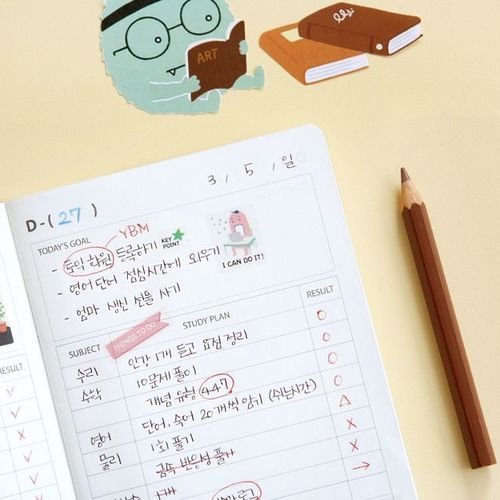 ART
3 / 5 / 일
D-( 27 )
YBM
TODAY'S GOAL
- 토익 학원 등록하기
KEY POINT
- 영어단어 점심시간에 외우기
I CAN DO IT!
- 엄마 생신 선물 사기
THINGS TO DO
SUBJECT STUDY PLAN RESULT
수리 인강 1개 듣고 요점 정리 O
수학 10문제 풀이 O
개념 유형 447 O
영어 단어, 숙어 20개씩 암기 (쉬는시간) O
물리 1회 풀기 △
X
X
→
RESULT
V
V
X
V
X